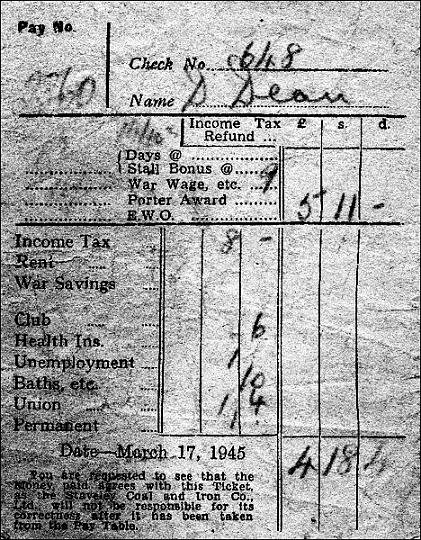 Pay No.
Check No. 648
Name D Dean
Income Tax £ s. d.
Refund ...
Days @
Stall Bonus @ 9
War Wage, etc.
Porter Award
E.W.O. 5 11 -
Income Tax 8 -
Rent
War Savings
Club 6
Health Ins.
Unemployment 1
Baths, etc. 10
Union 1 4
Permanent
Date—March 17, 1945 4 18 4
You are requested to see that the
Money paid agrees with this Ticket,
as the Staveley Coal and Iron Co.,
Ltd. will not be responsible for its
correctness after it has been taken
from the Pay Table.